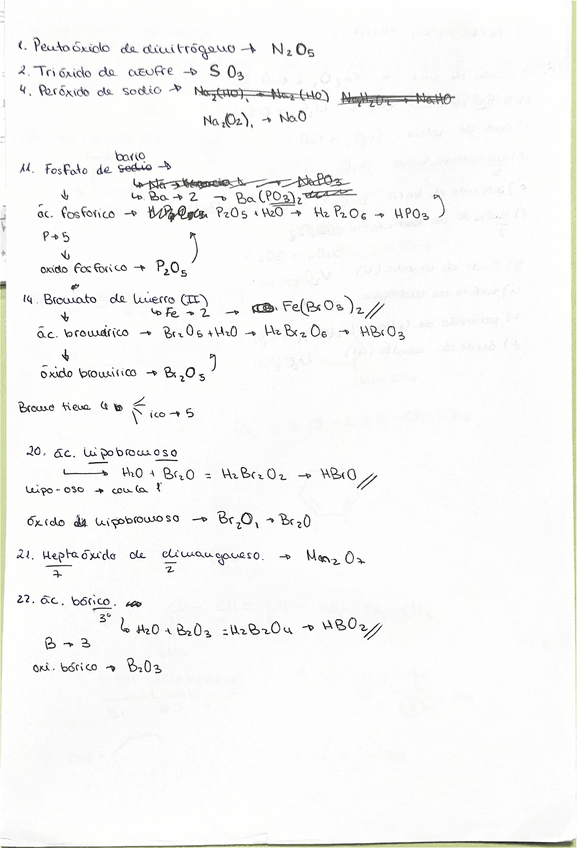 1. Pentaóxido de dinitrógeno → N2O5
2. Trióxido de azufre → SO3
4. Peróxido de sodio → Na2(HO)1 → Na2(HO) Na2H2O2 → NaHO
Na2(O2)1 → NaO
bario
11. Fosfato de sodio →
↳ Ba → 2 → Ba(PO3)2
ác. fosfórico → P2O5 + H2O → H2P2O6 → HPO3
P → 5
oxido fosforico → P2O5
14. Bromato de hierro (II)
↳ Fe → 2 → Fe(BrO3)2 //
ác. bromórico → Br2O5 + H2O → H2Br2O6 → HBrO3
óxido bromírico → Br2O5
Bromo tiene 4 ico → 5
20. ác. hipobromoso
→ H2O + Br2O = H2Br2O2 → HBrO //
hipo-oso → con la 1
óxido hipobromoso → Br2O1 → Br2O
21. Heptaóxido de dimanganeso. → Mn2O7
7 2
22. ác. bórico.
3º
↳ H2O + B2O3 = H2B2O4 → HBO2 //
B → 3
oxi. bórico → B2O3